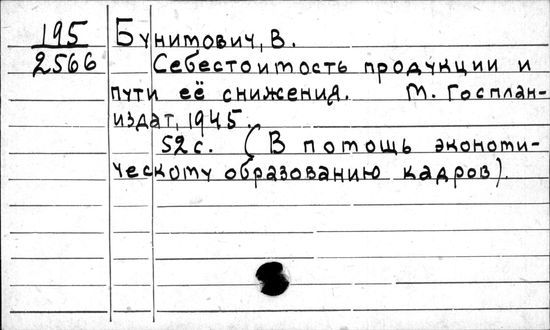 195 Бунимович, В.
2566 Себестоимость продукции и
пути её снижения. М. Госплан-
издат, 1945.
52с. (В помощь экономи-
ческому образованию кадров).